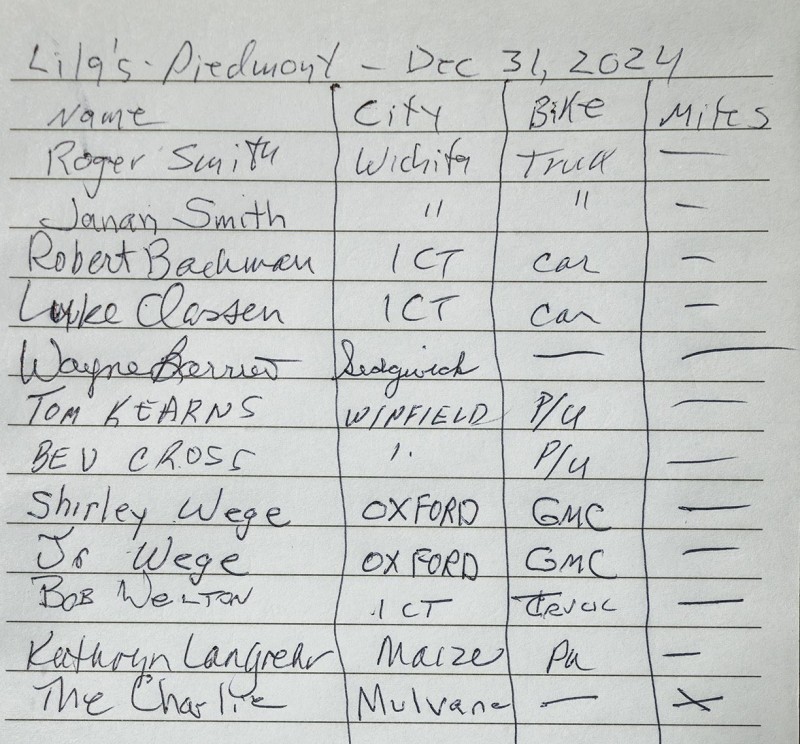 Lila's - Piedmont - Dec 31, 2024
Name City Bike Miles
Roger Smith Wichita Truck —
Janan Smith " " —
Robert Bachman ICT car —
Luke Classen ICT Car —
Wayne Sedgwick — —
TOM KEARNS WINFIELD P/U —
BEV CROSS " P/U —
Shirley Wege OXFORD GMC —
Jr Wege OXFORD GMC —
BOB WELTON ICT Truck —
Kathryn Langrehr Maize Pu —
The Charlie Mulvane — X